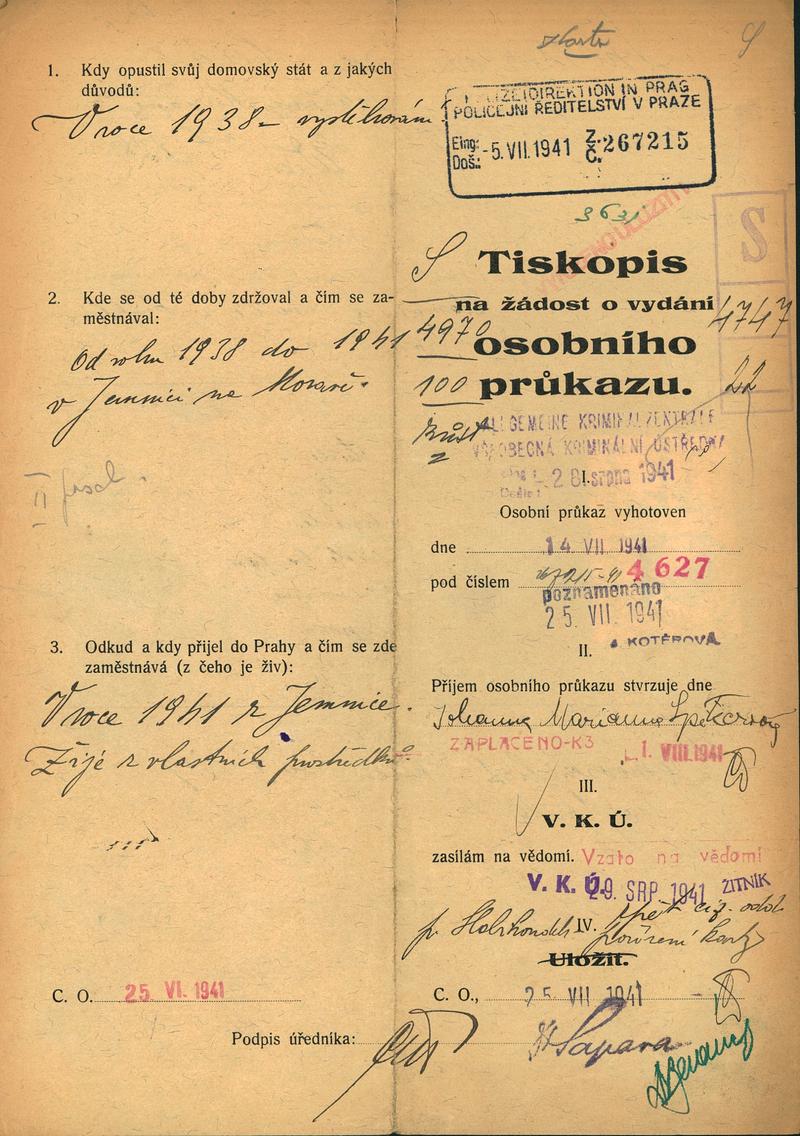 1. Kdy opustil svůj domovský stát a z jakých
důvodů:
V roce 1938 – vystěhován
2. Kde se od té doby zdržoval a čím se za-
městnával:
Od roku 1938 do 1941
v Jemnici na Moravě.
II
3. Odkud a kdy přijel do Prahy a čím se zde
zaměstnává (z čeho je živ):
V roce 1941 z Jemnice.
Žije z vlastních prostředků.
C. O. 25. VI. 1941
Podpis úředníka:
Karta
POLIZEIDIREKTION IN PRAG
POLICEJNÍ ŘEDITELSTVÍ V PRAZE
Eing.:
Doš.: -5. VII. 1941 Z. Č. 267215
S
S
Tiskopis
na žádost o vydání
4747
4970
osobního
100
průkazu.
22
ALLGEMEINE KRIMINALZENTRALE
VŠEOBECNÁ KRIMINÁLNÍ ÚSTŘEDNA
28. srpna 1941
I.
Osobní průkaz vyhotoven
dne 14. VII. 1941
pod číslem 4627
poznamenáno
25. VII. 1941
KOTĚROVÁ
II.
Příjem osobního průkazu stvrzuje dne
Johanna Marianna
ZAPLACENO-K3 1. VIII. 1941
III.
V. K. Ú.
zasílám na vědomí. Vzato na vědomí
V. K. Ú. 29. SRP. 1941 ŽITNÍK
IV.
Uložit.
C. O., 25. VII. 1941